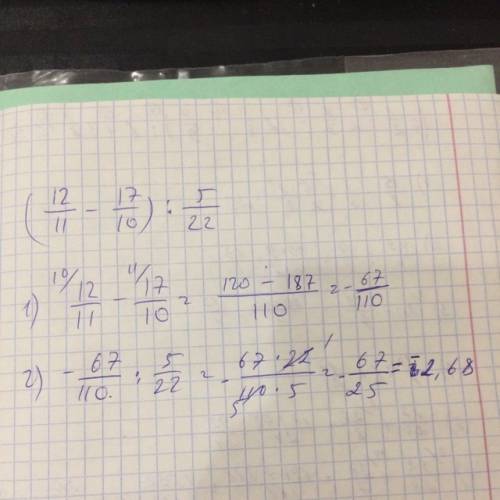 (12/11 - 17/10) : 5/22
1) 10/ 12/11 - 11/ 17/10 = 120 - 187/110 = - 67/110
2) - 67/110 : 5/22 = - 67 · 22 1/5 110 · 5 = - 67/25 = - 2,68